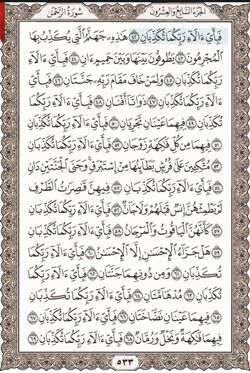 الجزء السابع والعشرون سورة الرحمن
فَبِأَيِّ ءَالَآءِ رَبِّكُمَا تُكَذِّبَانِ ٤٢ هَٰذِهِۦ جَهَنَّمُ ٱلَّتِي يُكَذِّبُ بِهَا
ٱلْمُجْرِمُونَ ٤٣ يَطُوفُونَ بَيْنَهَا وَبَيْنَ حَمِيمٍ ءَانٍ ٤٤ فَبِأَيِّ ءَالَآءِ
رَبِّكُمَا تُكَذِّبَانِ ٤٥ وَلِمَنْ خَافَ مَقَامَ رَبِّهِۦ جَنَّتَانِ ٤٦ فَبِأَيِّ ءَالَآءِ
رَبِّكُمَا تُكَذِّبَانِ ٤٧ ذَوَاتَآ أَفْنَانٍ ٤٨ فَبِأَيِّ ءَالَآءِ رَبِّكُمَا
تُكَذِّبَانِ ٤٩ فِيهِمَا عَيْنَانِ تَجْرِيَانِ ٥٠ فَبِأَيِّ ءَالَآءِ رَبِّكُمَا تُكَذِّبَانِ
٥١ فِيهِمَا مِن كُلِّ فَٰكِهَةٍ زَوْجَانِ ٥٢ فَبِأَيِّ ءَالَآءِ رَبِّكُمَا تُكَذِّبَانِ
٥٣ مُتَّكِـِٔينَ عَلَىٰ فُرُشٍۭ بَطَآئِنُهَا مِنْ إِسْتَبْرَقٍ وَجَنَى ٱلْجَنَّتَيْنِ دَانٍ
٥٤ فَبِأَيِّ ءَالَآءِ رَبِّكُمَا تُكَذِّبَانِ ٥٥ فِيهِنَّ قَٰصِرَٰتُ ٱلطَّرْفِ
لَمْ يَطْمِثْهُنَّ إِنسٌ قَبْلَهُمْ وَلَا جَآنٌّ ٥٦ فَبِأَيِّ ءَالَآءِ رَبِّكُمَا تُكَذِّبَانِ
٥٧ كَأَنَّهُنَّ ٱلْيَاقُوتُ وَٱلْمَرْجَانُ ٥٨ فَبِأَيِّ ءَالَآءِ رَبِّكُمَا تُكَذِّبَانِ ٥٩
هَلْ جَزَآءُ ٱلْإِحْسَٰنِ إِلَّا ٱلْإِحْسَٰنُ ٦٠ فَبِأَيِّ ءَالَآءِ رَبِّكُمَا
تُكَذِّبَانِ ٦١ وَمِن دُونِهِمَا جَنَّتَانِ ٦٢ فَبِأَيِّ ءَالَآءِ رَبِّكُمَا
تُكَذِّبَانِ ٦٣ مُدْهَآمَّتَانِ ٦٤ فَبِأَيِّ ءَالَآءِ رَبِّكُمَا تُكَذِّبَانِ
٦٥ فِيهِمَا عَيْنَانِ نَضَّاخَتَانِ ٦٦ فَبِأَيِّ ءَالَآءِ رَبِّكُمَا تُكَذِّبَانِ
٦٧ فِيهِمَا فَٰكِهَةٌ وَنَخْلٌ وَرُمَّانٌ ٦٨ فَبِأَيِّ ءَالَآءِ رَبِّكُمَا تُكَذِّبَانِ ٦٩
٥٣٣